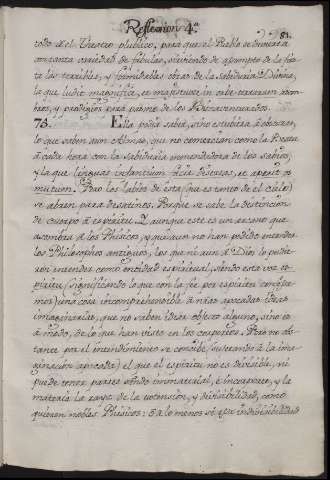 Reflexion 4.ª
81.
todo à el Theatro publico, para que el Pueblo se divierta
con tanta variedad de fabulas, sirviendo de assumpto de la fies-
ta las terribles, y formidables obras de la Sabiduria Divina,
la que ludit magnifice, et magnitudine in orbe terrarum
y prodigios para pasmo de los
75. Ella podia saber, sino estubiera à obscuras,
lo que saben aun Almas, que no comercian como la Beata
à cada hora con la Sabiduria de los siglos,
y la que linguas infantium facit disertas, et aperit os
mutum. Pero los labios de esta (que es tanto de el cielo)
se abren para desatinos. Porque se sabe la distincion
de cuerpo à espiritu. Y aunque este es un arcano que
assombra à los Phisicos, y que aun no han podido entender
los Philosophos antiguos, los que ni aun à Dios lo pudie-
ron entender como entidad espiritual, siendo esta voz es-
piritu (significando lo que con la fee por espiritu confessa-
mos) una cosa incomprehensible à nras apocadas ideas
imaginarias, que no saben idear objecto alguno, sino es
à modo, de lo que han visto en los corporeos. Pero no obs-
tante por el entendimiento se concibe (superando à la ima-
ginacion apocada) el que el espiritu no es divisible, ni
puede tener partes siendo immaterial, è incorporeo, y la
materia la razon de la extension, y divisibilidad, como
quieren nobles Phisicos: ò à lo menos se que indivisibilidad